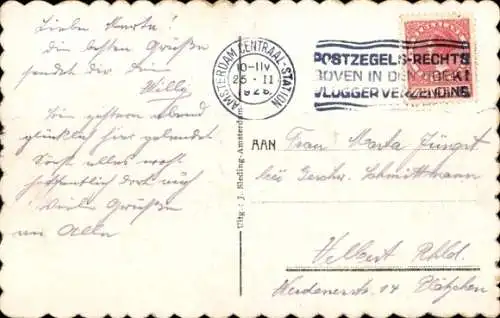 Liebe Marta!
Die besten Grüße
sendet dir dein
Willy
Bin gestern abend
glücklich hier gelandet
Sonst alles wohl
hoffentlich dort auch
Viele Grüße
an Alle
AMSTERDAM CENTRAAL-STATION
10-11V
25 · II
1928
POSTZEGELS RECHTS
BOVEN IN DEN HOEK!
VLUGGER VERZENDING
Uitg.: J. Sleding-Amsterdam
AAN Frau Marta Jüngst
bei Geschw. Schmittmann
Velbert Rhld.
Werdenerstr. 14